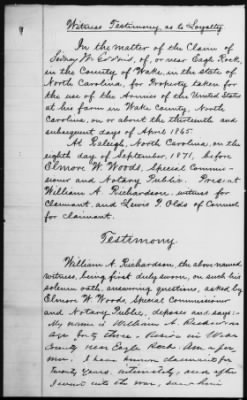 Witness Testimony, as to Loyalty
In the matter of the Claim of
Sidney W. of, or near Eagle Rock,
in the County of Wake, in the state of
North Carolina, for Property taken for
the use of the Armies of the United States
at his farm in Wake County, North
Carolina, on or about the thirteenth and
subsequent days of April 1865.
At Raleigh, North Carolina, on the
eighth day of September, 1871, before
Elmore W. Woods, Special Commis-
sioner and Notary Public. Present
William A. Richardson, witness for
Claimant, and Lewis P. Olds of Counsel
for claimant.
Testimony.
William A. Richardson, the above named
witness, being first duly sworn, on such his
solemn oath, answering questions, asked by
Elmore W. Woods, Special Commissioner
and Notary Public, deposes and says:-
My name is William A. Richardson
Age forty three - Reside in Wake
County near Eagle Rock - Am a far-
mer. I have known claimant for
twenty years, intimately, and after
I went into the war, saw him